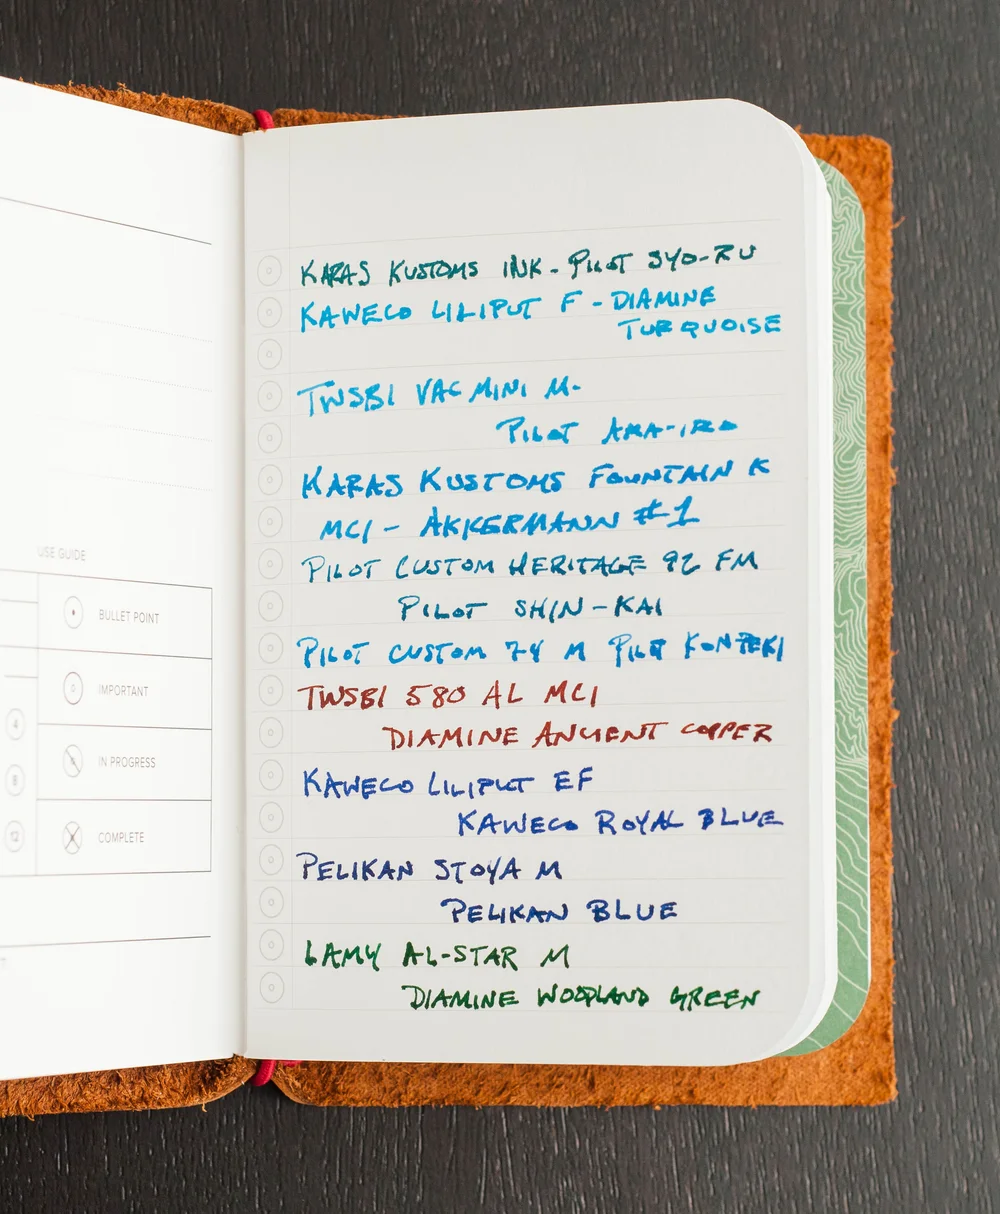 USE GUIDE
BULLET POINT
IMPORTANT
IN PROGRESS
COMPLETE
4
8
12
KARAS KUSTOMS INK - PILOT SYO-RU
KAWECO LILIPUT F - DIAMINE
TURQUOISE
TWSBI VAC MINI M-
PILOT AMA-IRO
KARAS KUSTOMS FOUNTAIN K
MCI - AKKERMANN #1
PILOT CUSTOM HERITAGE 92 FM
PILOT SHIN-KAI
PILOT CUSTOM 74 M PILOT KONPEKI
TWSBI 580 AL MCI
DIAMINE ANCIENT COPPER
KAWECO LILIPUT EF
KAWECO ROYAL BLUE
PELIKAN STOYA M
PELIKAN BLUE
LAMY AL-STAR M
DIAMINE WOODLAND GREEN